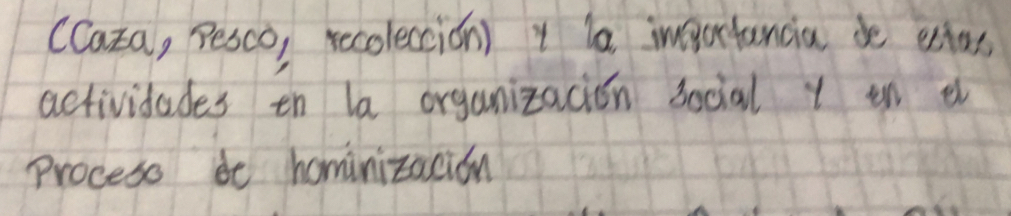 (Caza, Pesco, recolección) y la importancia de estas
actividades en la organización social y en el
Proceso de hominización